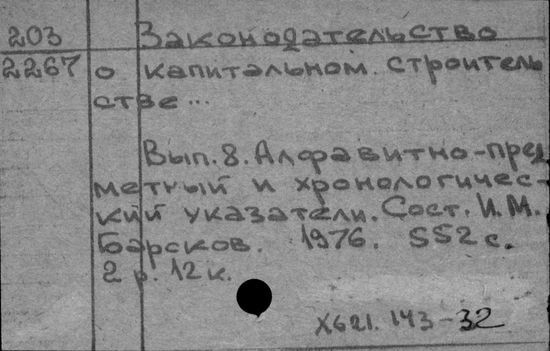 203 Законодательство
2267 о капитальном строитель
стве...
Вып. 8. Алфавитно-пред
метный и хронологичес-
кий указатели. Сост. И. М.
Барсков. 1976. 552 с.
2 р. 12 к.
X621.143-32